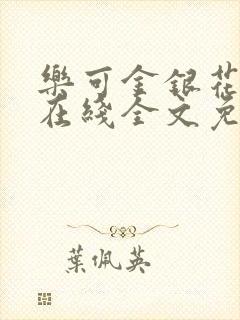 樂可金銀花
在綫全文免
葉佩英